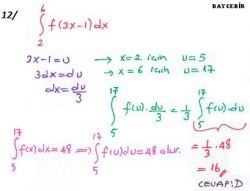 BAYCEBİR
12/
∫₂⁶ f(3x-1)dx
3x-1=u → x=2 için u=5
3dx=du → x=6 için u=17
dx=du/3
∫₅¹⁷ f(u).du/3 = 1/3 ∫₅¹⁷ f(u)du
∫₅¹⁷ f(x)dx=48 ⟹ ∫₅¹⁷ f(u)du=48 olur.
= 1/3 . 48
= 16
CEVAP:D